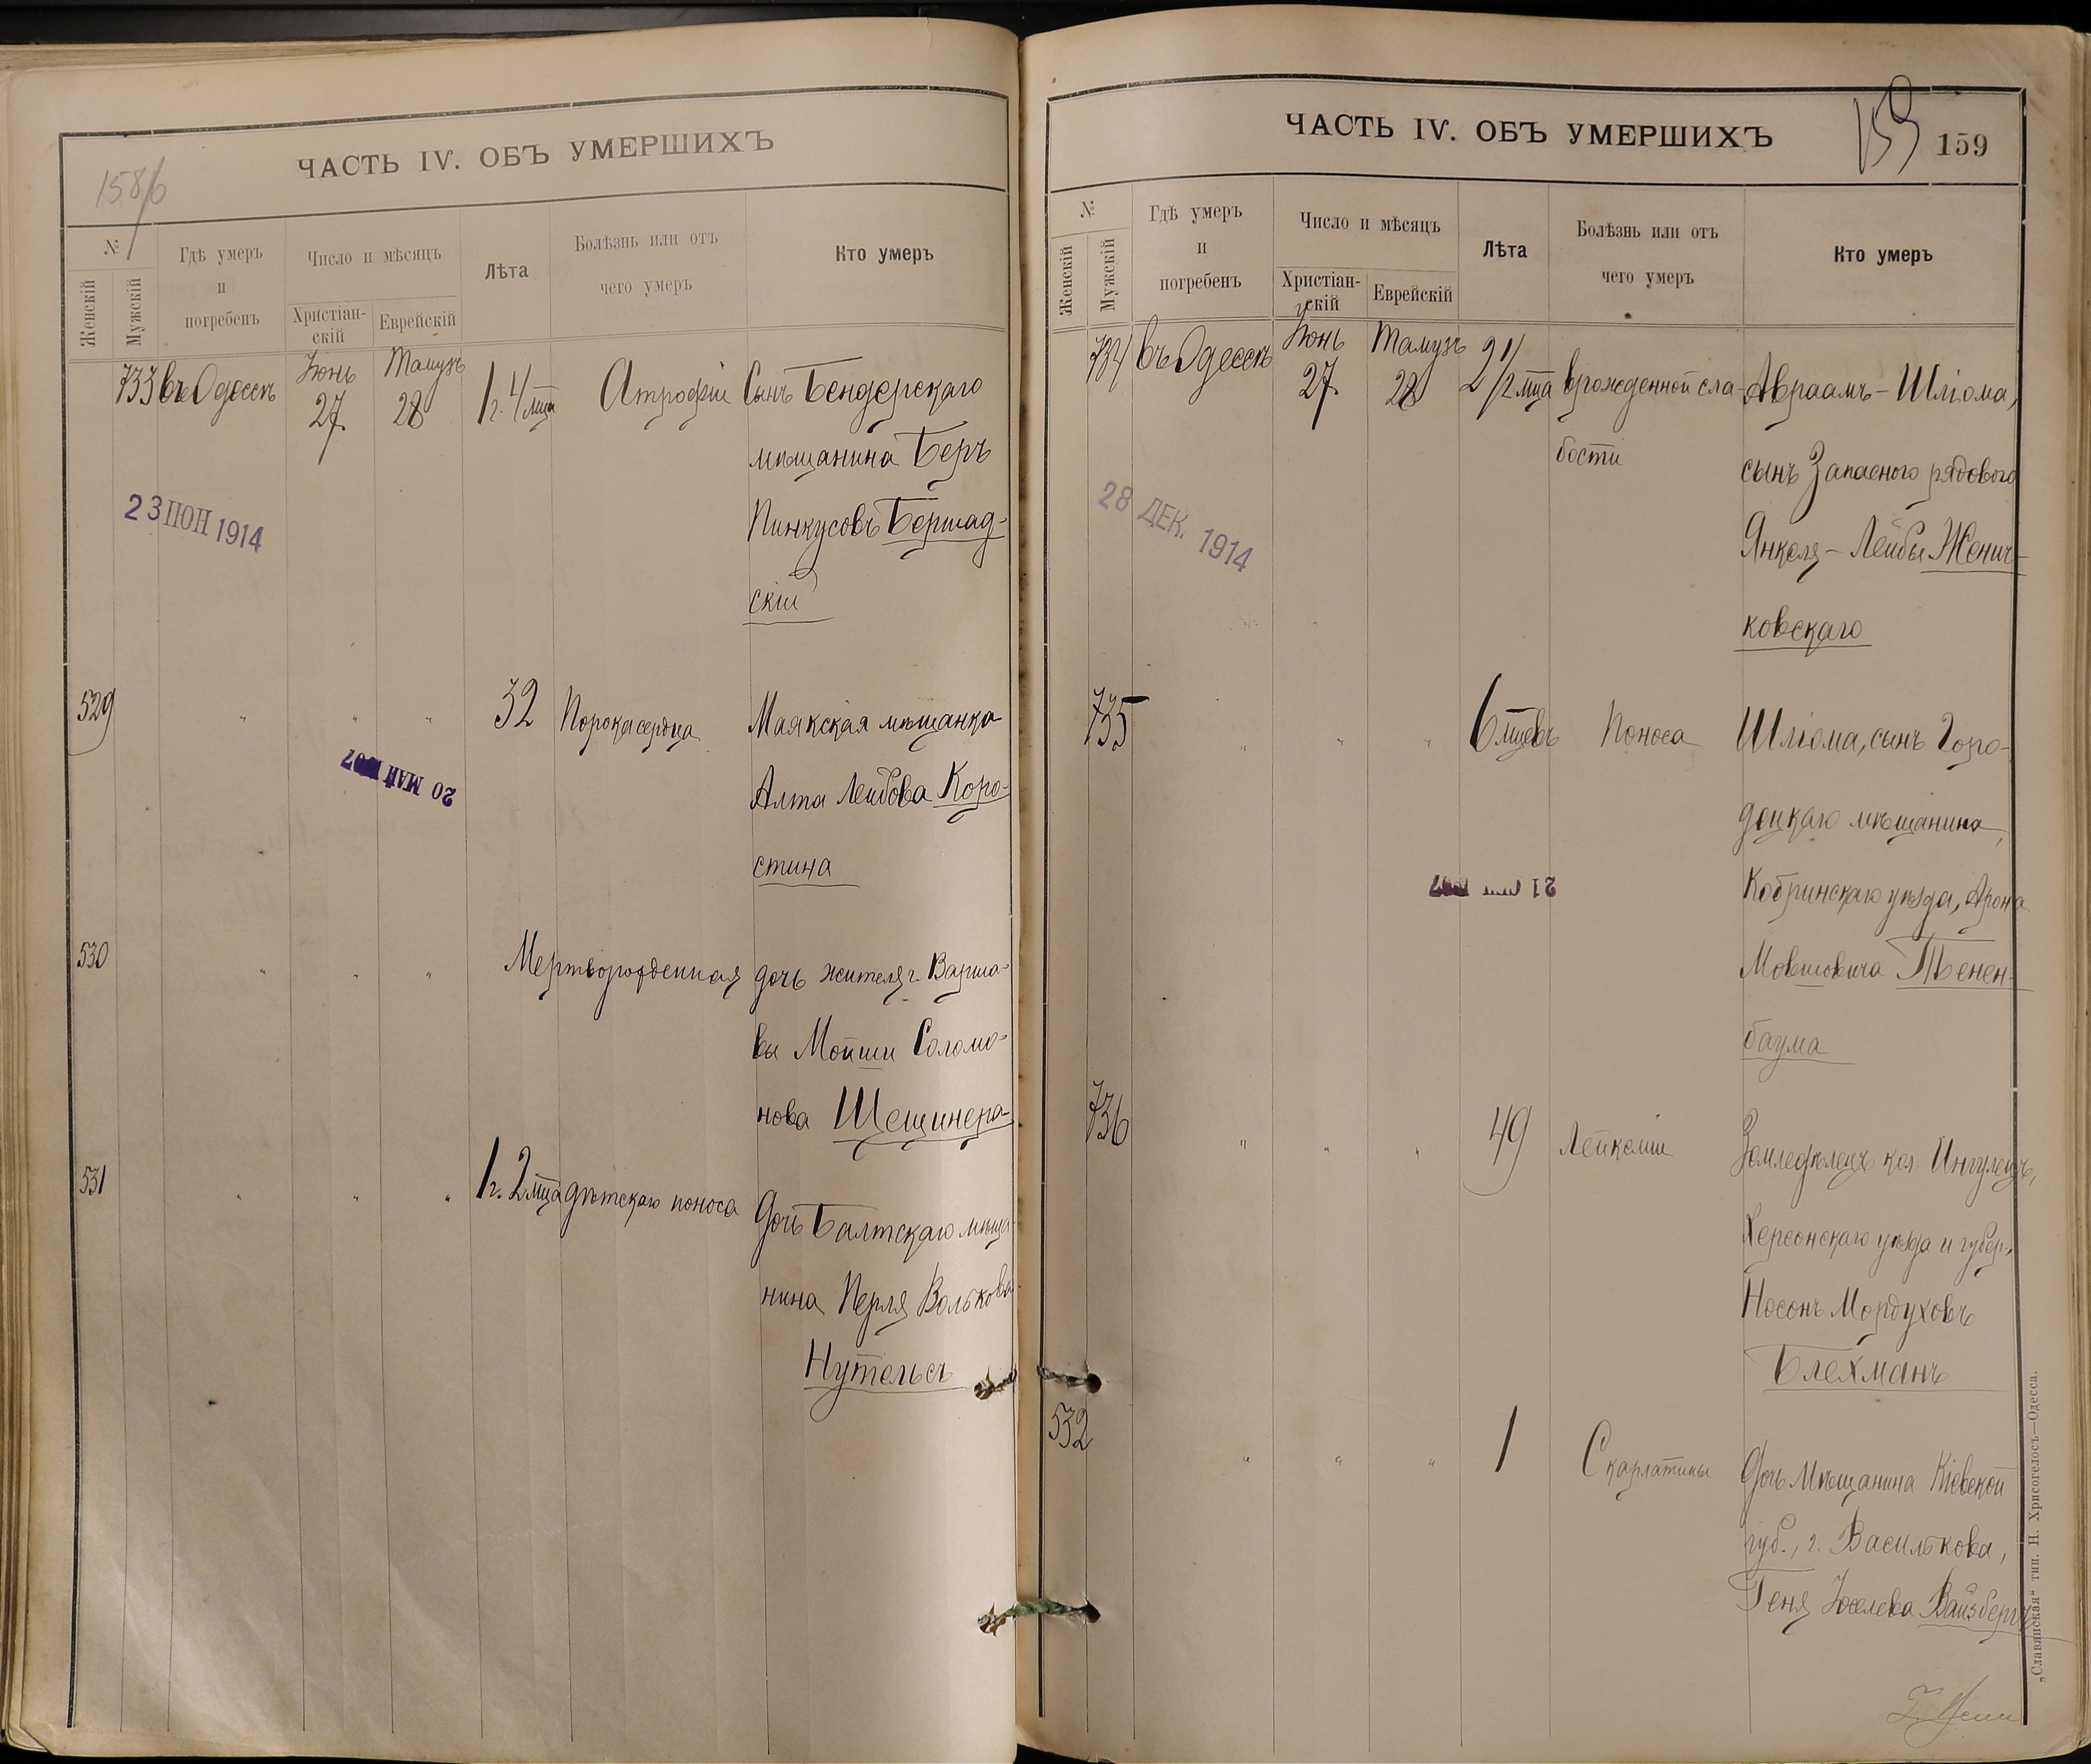 158/б
ЧАСТЬ IV. ОБЪ УМЕРШИХЪ
№
Женскій
Мужскій
Гдѣ умеръ
и
погребенъ
Число и мѣсяцъ
Христіан-
скій
Еврейскій
Лѣта
Болѣзнь или отъ
чего умеръ
Кто умеръ
733 въ Одессѣ Іюнь 27. Тамузъ 28 1 г. 4 мца Атрофіи Сынъ Бендерскаго
мѣщанина Беръ
Пинкусовъ Бершад-
скій
23 ІЮН 1914
529 " " " 32 Порока сердца Маякская мѣщанка
Алта Лейбова Коро-
стина
20 МАЙ
530 " " " Мертворожденная дочь жителя г. Варша-
вы Мойши Соломо-
нова Щещинера
531 " " " 1 г. 2 мца дѣтскаго поноса Дочь Балтскаго мѣща-
нина Перля Волькова
Нутельсъ
ЧАСТЬ IV. ОБЪ УМЕРШИХЪ
159
159
№
Женскій
Мужскій
Гдѣ умеръ
и
погребенъ
Число и мѣсяцъ
Христіан-
скій
Еврейскій
Лѣта
Болѣзнь или отъ
чего умеръ
Кто умеръ
734 въ Одессѣ Іюнь 27. Тамузъ 28 2 1/2 мца врожденной сла- Авраамъ-Шліома,
бости сынъ Запасного рядового
Янкеля-Лейбы Женич-
ковскаго
28 ДЕК. 1914
735 " " " 6 мцевъ Поноса Шліома, сынъ Горо-
децкаго мѣщанина,
Кобринскаго уѣзда, Арона
Мовшовича Тенен-
баума
21
736 " " " 49 Лейкеміи Земледѣлецъ кол. Ингулецъ,
Херсонскаго уѣзда и губер.,
Носонъ Мордуховъ
Блехманъ
532 " " " 1 Скарлатины Дочь Мѣщанина Кіевской
губ., г. Василькова,
Геня Іоселева Вайзбергъ
„Славянская“ тип. Н. Хрисогелосъ—Одесса.